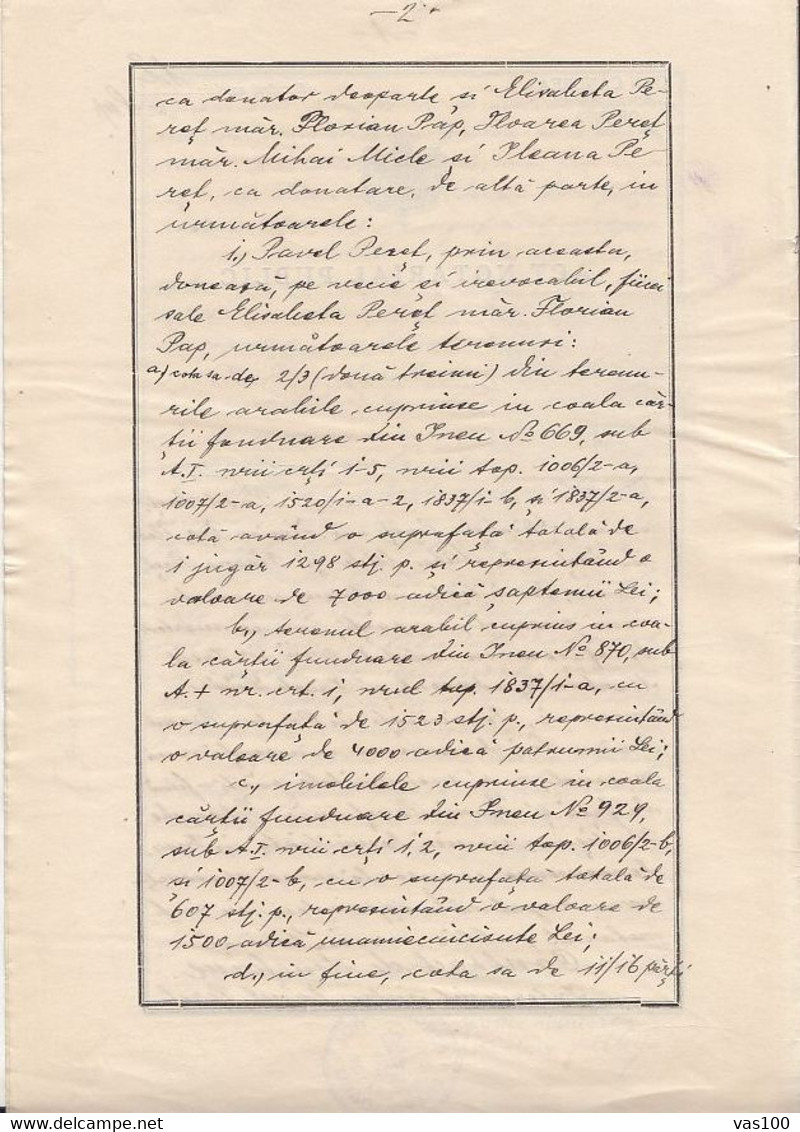 — 2 —
ca donator deoparte si Elisabeta Pe-
reț măr. Florian Pap, Floarea Pereț
măr. Mihai Micle și Ileana Pe-
reț, ca donatare, de altă parte, in
următoarele:
1., Pavel Pereț, prin aceasta,
donează, pe vecie si irevocabil, fiicei
sale Elisabeta Pereț măr. Florian
Pap, următoarele terenuri:
a) cota sa de 2/3 (două treimi) din teren-
rile arabile cuprinse in coala căr-
tii funduare din Ineu № 669, sub
A.I. nrii crți 1-5, nrii top. 1006/2-a,
1007/2-a, 1520/1-a-2, 1837/1-b, și 1837/2-a,
cotă având o suprafață totală de
1 jugăr 1298 stj. p. si reprezintând o
valoare de 7000 adică șaptemii Lei;
b., terenul arabil cuprins in coa-
la cărtii funduare din Ineu № 870, sub
A.+ nr. crt. 1, nrul top. 1837/1-a, cu
o suprafață de 1523 stj. p., reprezintând
o valoare de 4000 adică patrumii Lei;
c., imobilele cuprinse in coala
cărții funduare din Ineu № 929,
sub A.I. nrii crți 1, 2, nrii top. 1006/2-b,
si 1007/2-b, cu o suprafață totală de
607 stj. p., reprezintând o valoare de
1500 adică unamiecincisute Lei;
d., in fine, cota sa de 11/16 părți
vas100